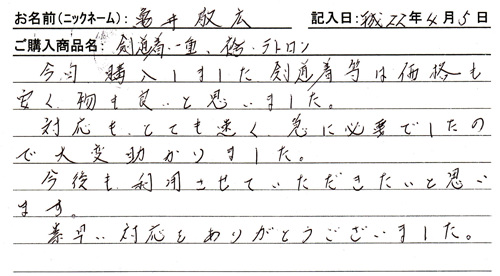 お名前(ニックネーム): 亀井 敬広 記入日: 平成22年4月5日
ご購入商品名: 剣道着一重、袴・テトロン
今回購入しました剣道着等は価格も
安く、物も良いと思いました。
対応も、とても速く、急に必要でしたの
で大変助かりました。
今後も利用させていただきたいと思い
ます。
素早い対応をありがとうございました。